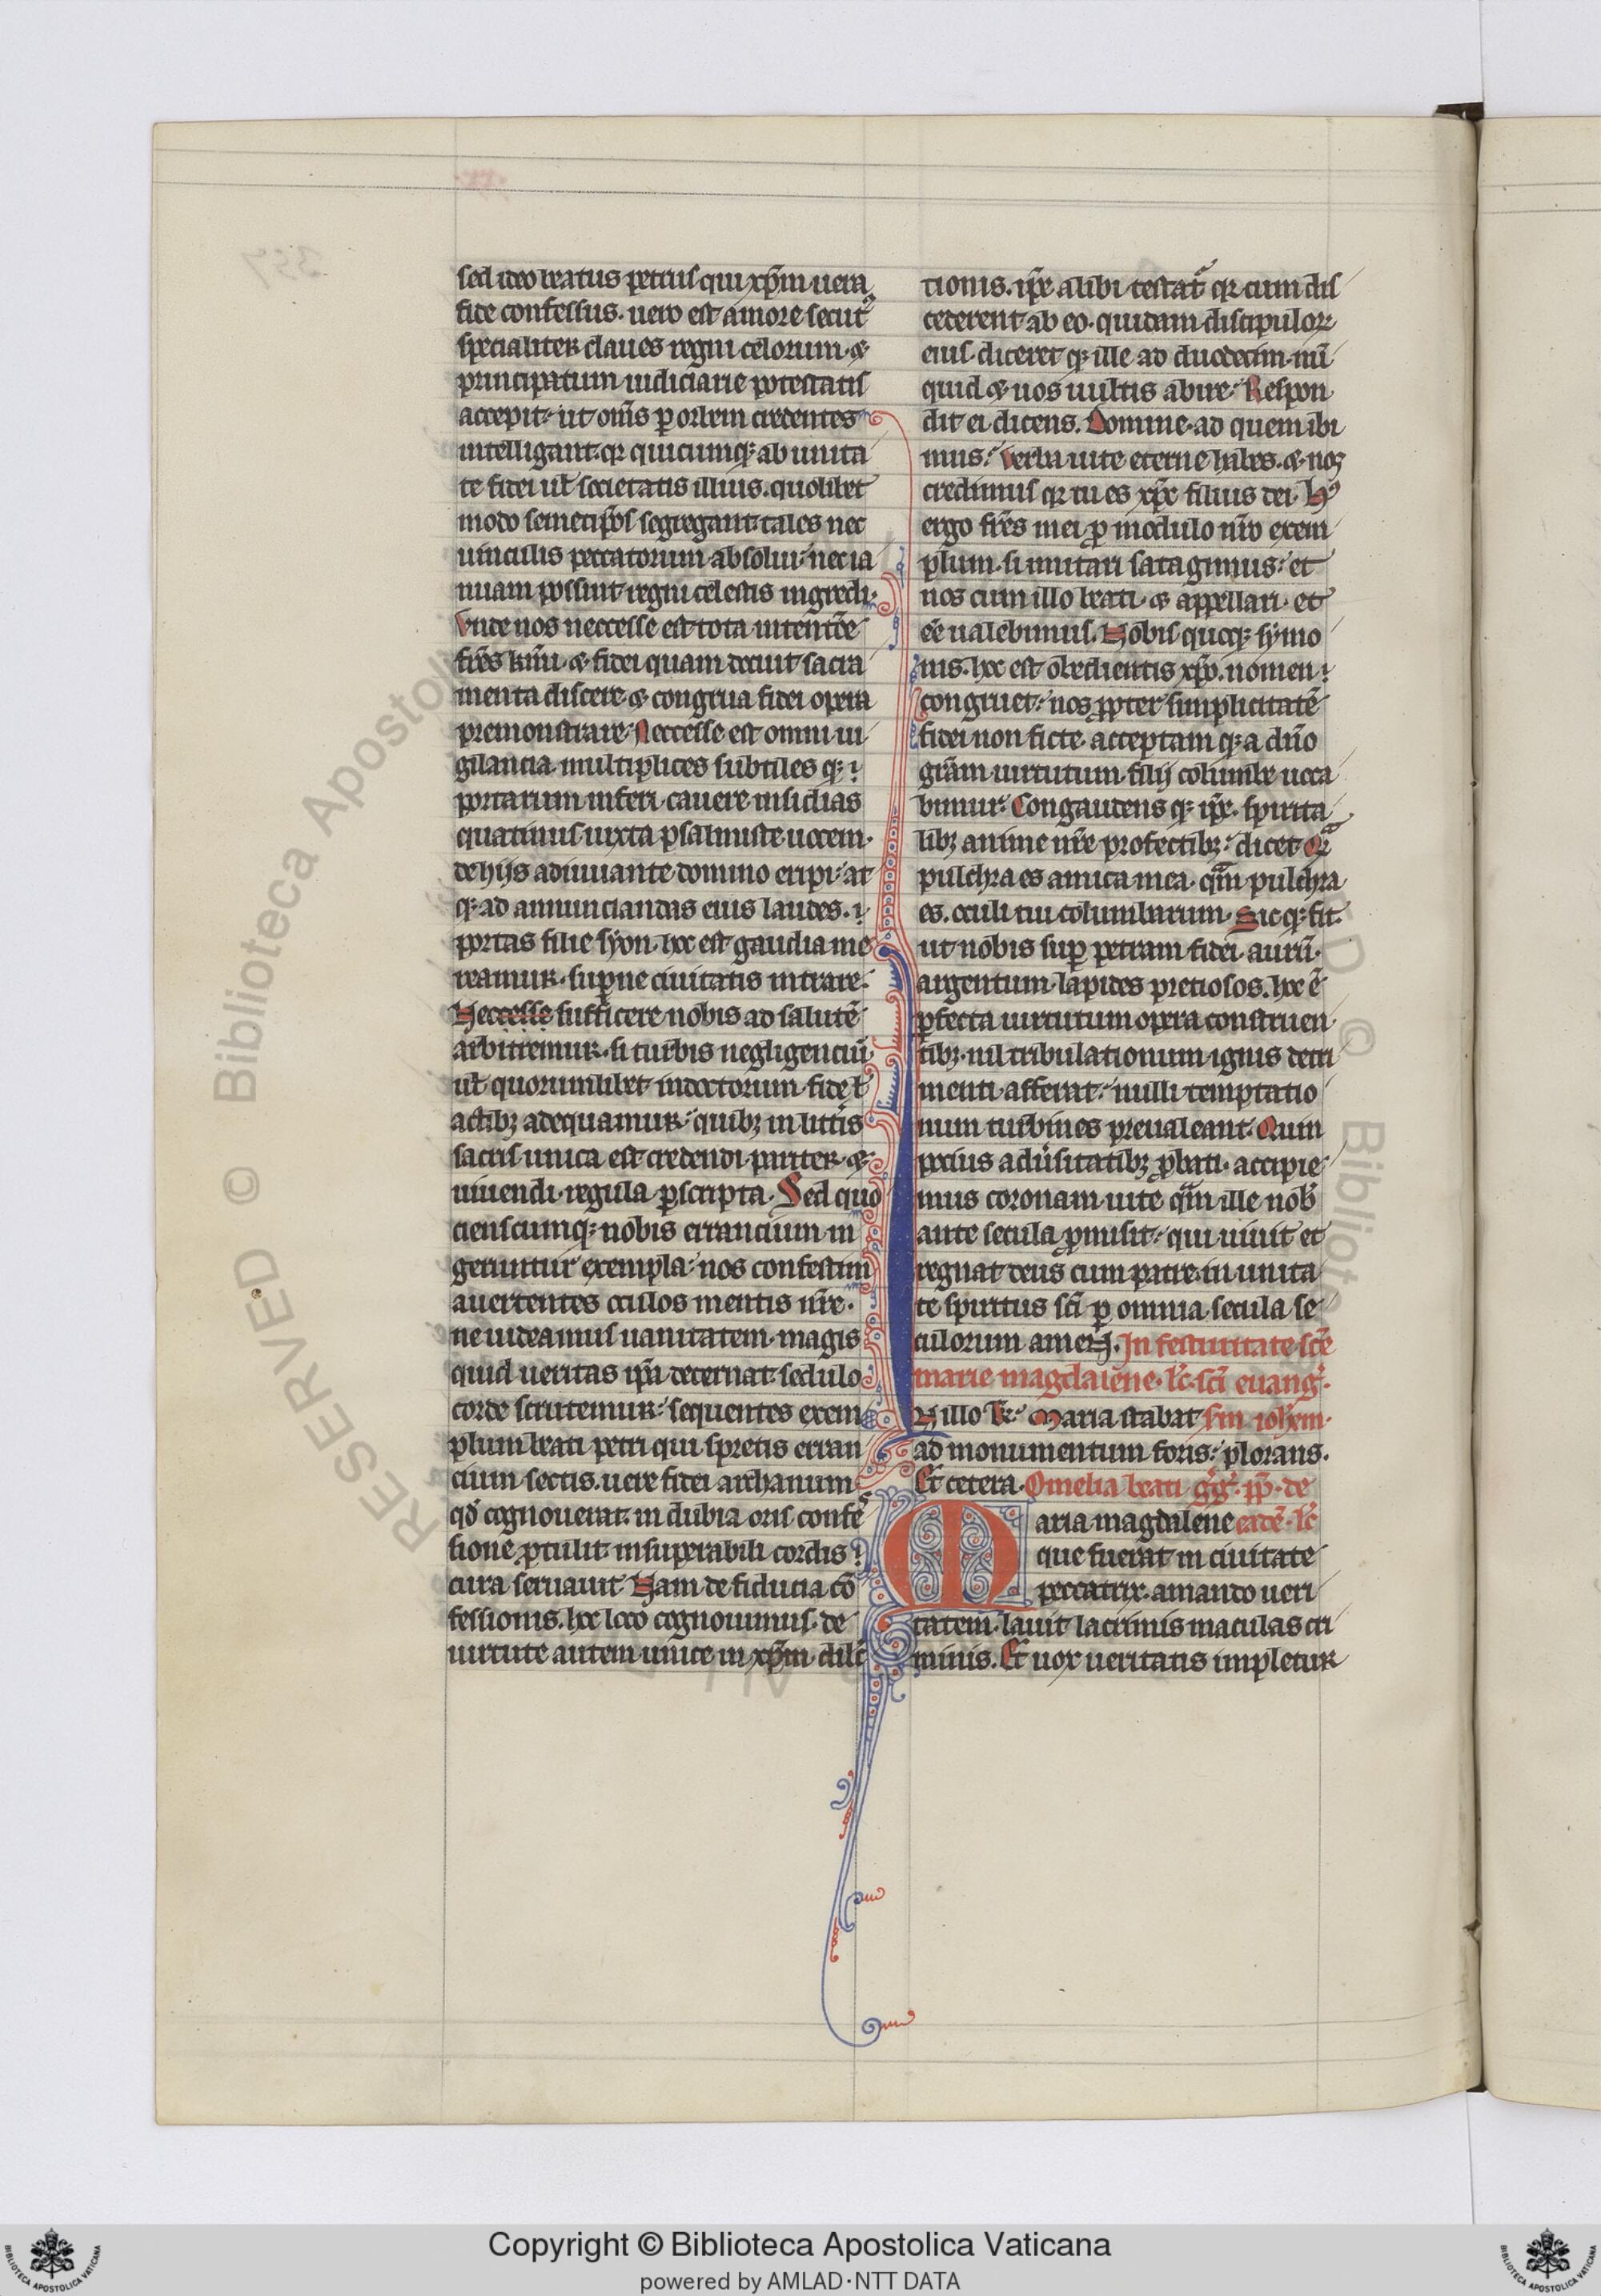 sed ideo beatus petrus qui xp̄m uera
fide confessus. uero est amore secutꝰ
specialiter claues regni celorum ⁊
principatum iudiciarie potestatis
accepit ut om̄s ꝑ orbem credentes
intelligant qꝛ quicumqꝫ ab unita
te fidei ul̄ societatis illius. quolibet
modo semetip̄os segregant tales nec
uinculis peccatorum absolui nec ia
nuam possint regni celestis ingredi.
Unde nos neccesse est tota intentōe
fr̄es km̄i ⁊ fidei quam decuit sacra
menta discere ⁊ congrua fidei opera
premonstrare. Neccesse est omni ui
gilancia multiplices subtiles qꝫ
portarum inferi cauere insidias
quatinus iuxta psalmiste uocem.
de hijs adiuuante domino eripi at
qꝫ ad annunciandas eius laudes.
portas filie syon. hoc est gaudia me
reamur. suꝑne ciuitatis intrare.
Neccesse sufficere nobis ad salutē
arbitremur. si turbis negligenciū
ul̄ quorumlibet indoctorum fide ł
actibꝫ adequamur. quibꝫ in litt̄is
sacris unica est credendi pariter ⁊
uiuendi regula ꝑscripta. Sed quo
cienscumqꝫ nobis errancium in
geruntur exempla nos confestim
auertentes oculos mentis nr̄e.
ne uideamus uanitatem magis
quid ueritas ip̄a decernat sedulo
corde scrutemur sequentes exem
plum beati petri qui spretis erran
cium sectis. uere fidei archanum
qd̄ cognouerat in dubia oris confes
sione ꝓtulit insuperabili cordis
cura seruauit. Nam de fiducia cō
fessionis. hoc loco cognouimus. de
uirtute autem unice in xp̄m dilc̄
tionis. ip̄e alibi testat̄ qꝛ cum dis
cederent ab eo. quidam discipuloꝝ
eius diceret qꝫ ille ad duodecim. nū
quid ⁊ uos uultis abire. Respon
dit ei dicens. Domine. ad quem ibi
mus. Verba uite eterne habes. ⁊ nos
credimus qꝛ tu es xp̄c filius dei. Hꝰ
ergo fr̄es mei ꝓ modulo nr̄o exem
plum. si imitari satagimus. et
nos cum illo beati. ⁊ appellari. et
eē ualebimus. Nobis quoqꝫ symo
nis. hoc est obedientis xp̄o. nomen
congruet. nos ꝓpter simplicitatē
fidei non ficte acceptam qꝫ a dn̄o
grām uirtutum. filij columbe uoca
bimur. Congaudens qꝫ ip̄e. spirita
libꝫ anime nr̄e profectibꝫ dicet. Qᷓ
pulchra es amica mea. qm̄ pulchra
es. oculi tui columbarum. Sic qꝫ fit
ut nobis suꝑ petram fidei aurū.
argentum. lapides pretiosos. hoc ē
ꝑfecta uirtutum opera construen
tibꝫ. nil tribulationum ignis detri
menti afferat. nulli temptatio
num turbines preualeant. Quin
pocius adu̓sitatibꝫ ꝓbati. accipie
mus coronam uite qm̄ ille nob̓
ante secula ꝓmisit. qui uiuit et
regnat deus cum patre. in unita
te spiritus sc̄i ꝑ omnia secula se
culorum amen. In festiuitate sc̄e
marie magdalene. lc̄. sc̄i euang̓.
IN illo t̄e. Maria stabat sm̄ ioh̄em.
ad monumentum foris. plorans.
Et cetera. Omelia beati g̓g̓. pp̄. de
Maria magdalene eadē. lc̄
que fuerat in ciuitate
peccatrix. amando ueri
tatem. lauit lacrimis maculas cri
minis. Et uox ueritatis impletur
Copyright © Biblioteca Apostolica Vaticana
powered by AMLAD·NTT DATA